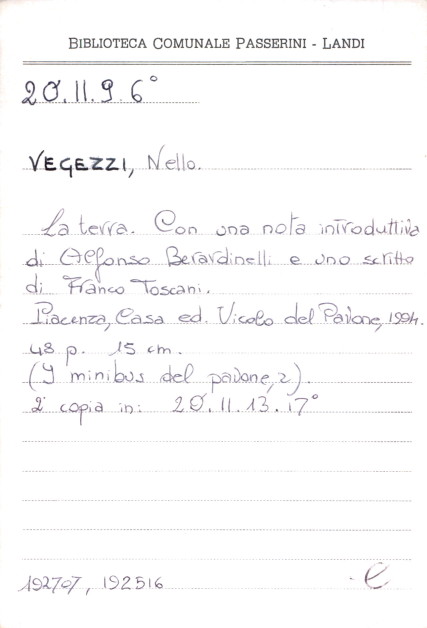 BIBLIOTECA COMUNALE PASSERINI - LANDI
20.II.9.6°
VEGEZZI, Nello.
La terra. Con una nota introduttiva
di Alfonso Berardinelli e uno scritto
di Franco Toscani.
Piacenza, Casa ed. Vicolo del Pavone, 1994.
48 p. 15 cm.
(I minibus del pavone, 2).
2ª copia in: 20.II.13.17°
192707, 192516
e